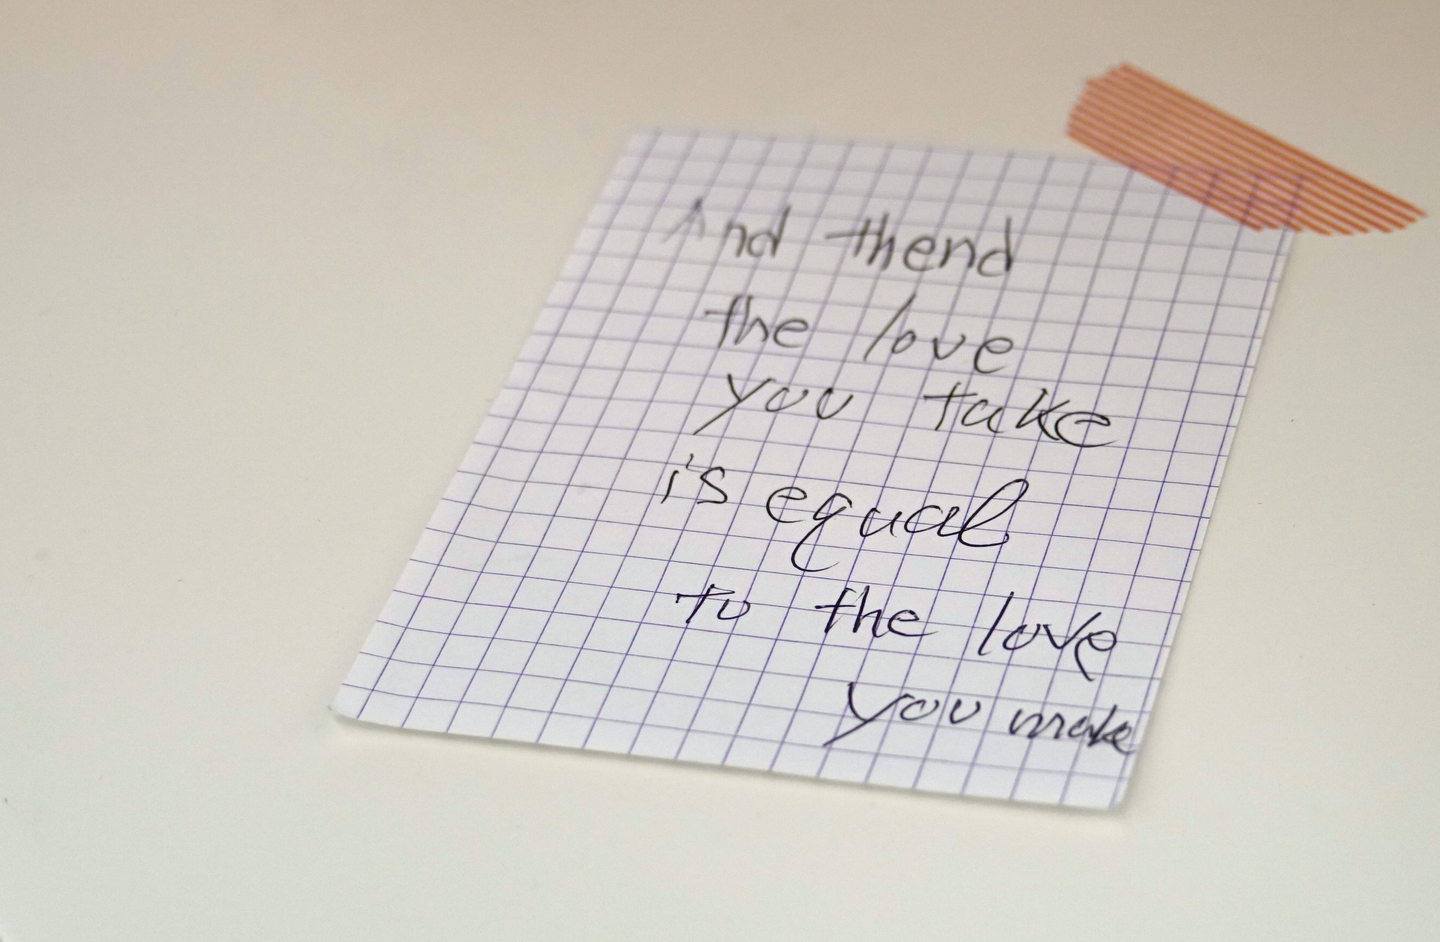 And thend
the love
you take
is equal
to the love
you make